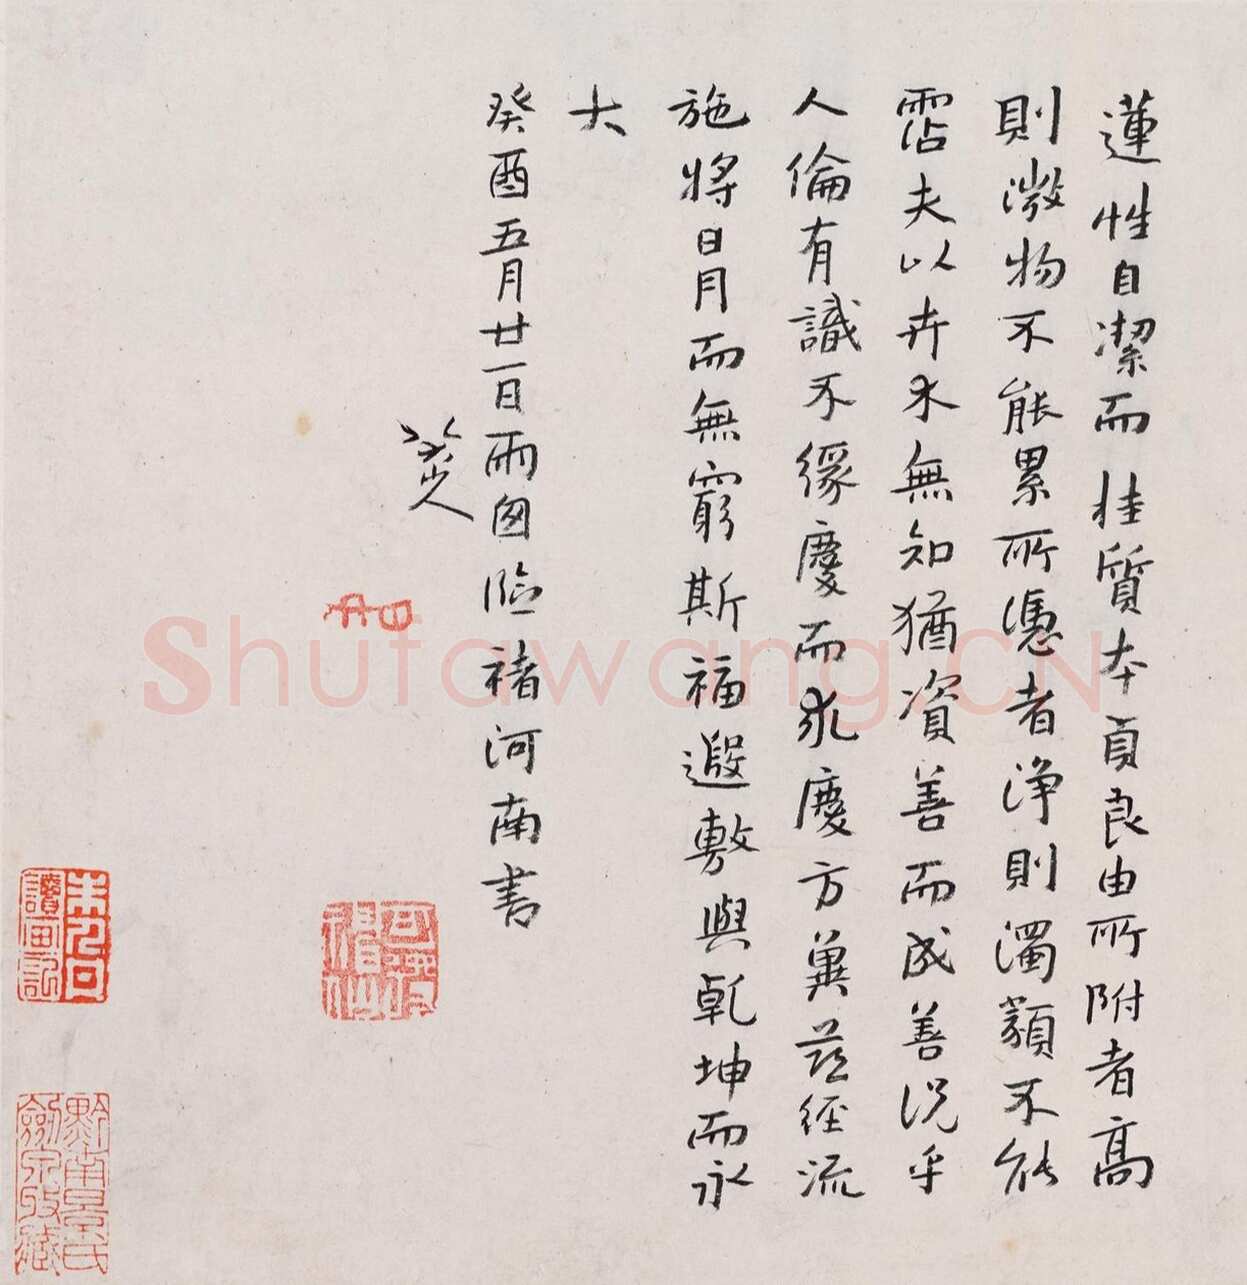 蓮性自潔而桂質本貞良由所附者高
則微物不能累所憑者淨則濁類不能
霑夫以卉木無知猶資善而成善況乎
人倫有識不緣慶而求慶方冀茲經流
施將日月而無窮斯福遐敷與乾坤而永
大
癸酉五月廿一日雨囪臨褚河南書
八大山人
可得神仙
朱八可讀畫記
黔南景氏劍泉攷藏
Shufawang.CN